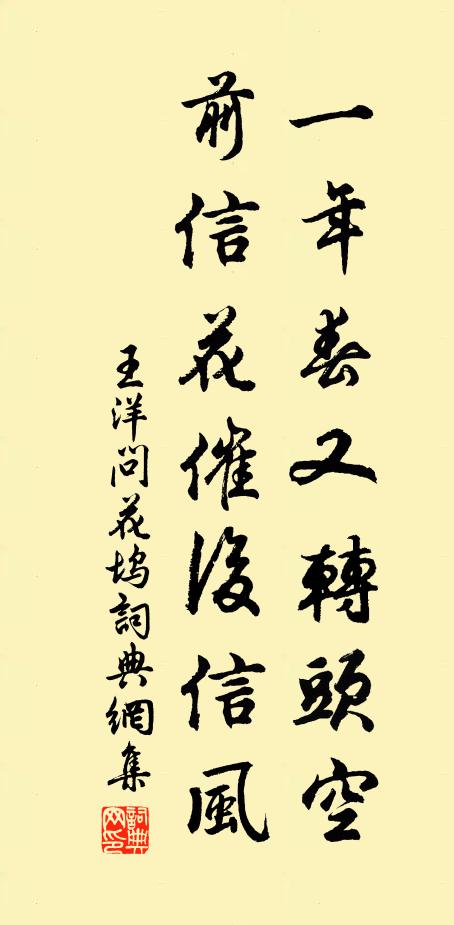 一年春又轉頭空
前信花催後信風
王洋問花塢詞典網集
詞典網印